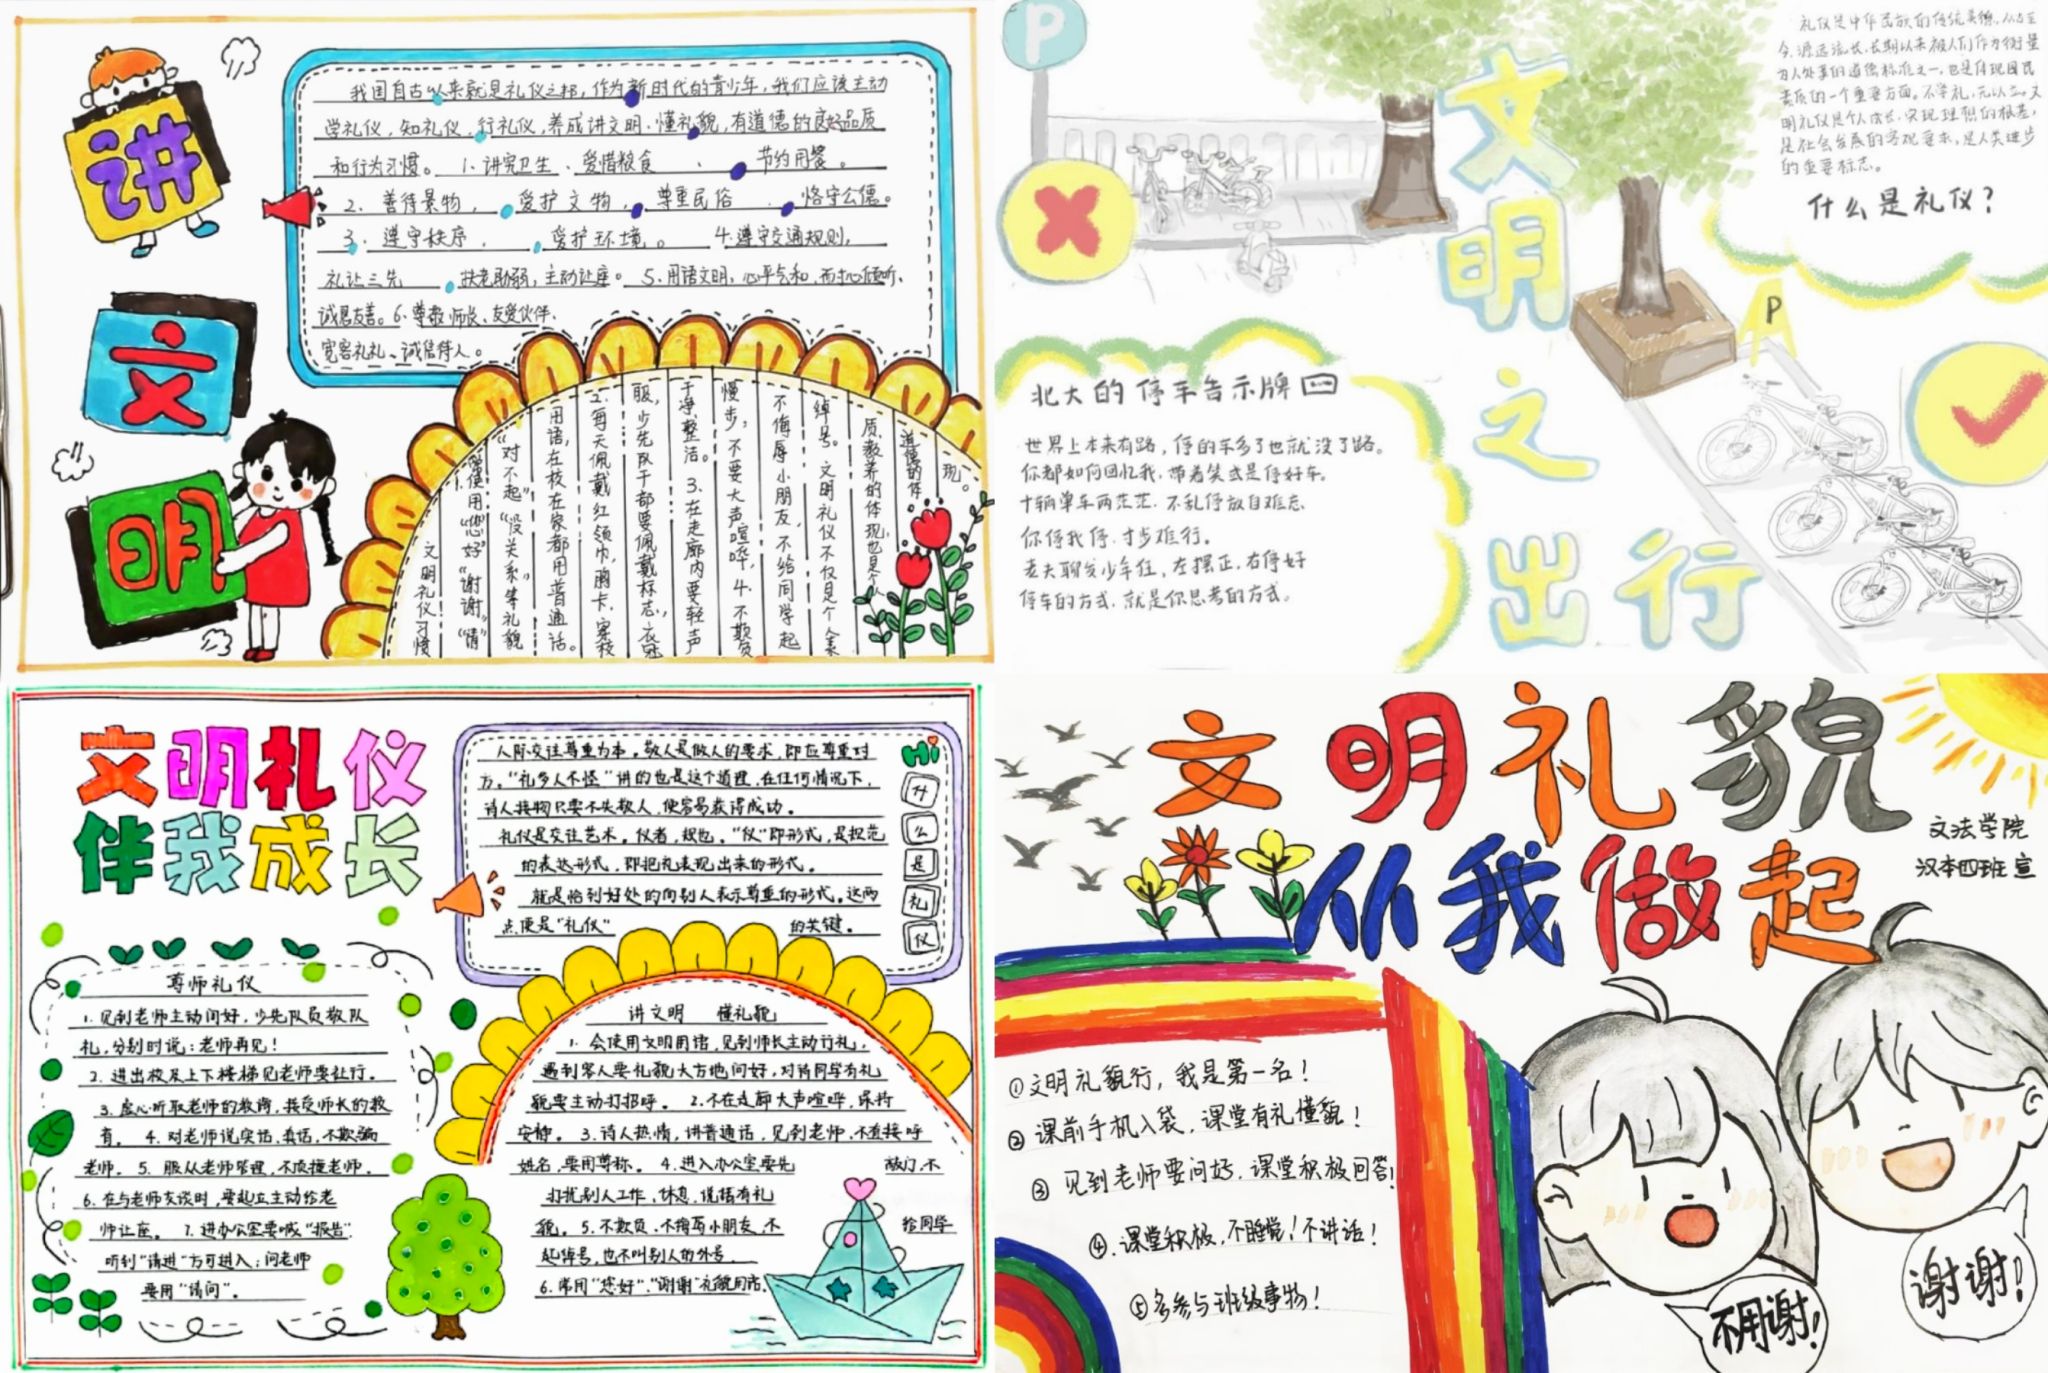 讲
文
明
我国自古以来就是礼仪之邦,作为新时代的青少年,我们应该主动
学礼仪,知礼仪,行礼仪,养成讲文明、懂礼貌,有道德的良好品质
和行为习惯。1.讲究卫生、爱惜粮食、节约用餐。
2.善待景物,爱护文物,尊重民俗、恪守公德。
3.遵守秩序,爱护环境。4.遵守交通规则,
礼让三先、扶老助弱,主动让座。5.用语文明,心平气和,耐心倾听、
诚恳友善。6.尊敬师长、友爱伙伴、
宽容礼礼、诚信待人。
文明礼仪习惯
1.会使用“您好”“谢谢”“请”
“对不起”“没关系”等礼貌
用语,在校在家都用普通话。
2.每天佩戴红领巾,胸卡,穿校
服,少先队干部要佩戴标志,衣冠
干净,整洁。3.在走廊内要轻声
慢步,不要大声喧哗,4.不欺负
不侮辱小朋友,不给同学起
绰号。文明礼仪不仅是个人素
质,教养的体现,也是个人
道德的体
现。
P
文明之出行
礼仪是中华民族的传统美德,从古至
今,源远流长,长期以来被人们作为衡量
为人处事的道德标准之一,也是体现国民
素质的一个重要方面。不学礼,无以立。文
明礼仪是个人成长,实现理想的根基,
是社会发展的客观要求,是人类进步
的重要标志。
什么是礼仪?
P
北大的停车告示牌
世界上本来有路,停的车多了也就没了路。
你都如何回忆我,带着笑或是停好车。
十辆单车两茫茫,不乱停放自难忘
你停我停,寸步难行。
老夫聊发少年狂,左摆正,右停好
停车的方式,就是你思考的方式。
文明礼仪
伴我成长
人际交往尊重为本。敬人是做人的要求,即应尊重对
方。“礼多人不怪”讲的也是这个道理,在任何情况下,
待人接物只要不失敬人,便容易获得成功。
礼仪是交往艺术。仪者,规也。“仪”即形式,是规范
的表达形式,即把礼表现出来的形式。
就是恰到好处的向别人表示尊重的形式。这两
点便是“礼仪”的关键。
Hi
什
么
是
礼
仪
尊师礼仪
1.见到老师主动问好,少先队员敬队
礼,分别时说:老师再见!
2.进出校及上下楼梯见老师要让行。
3.虚心听取老师的教诲,接受师长的教
育。4.对老师说实话,真话,不欺骗
老师。5.服从老师管理,不顶撞老师。
6.在与老师交谈时,要起立主动给老
师让座。7.进办公室要喊“报告”,
听到“请进”方可进入;问老师
要用“请问”。
讲文明 懂礼貌
1.会使用文明用语,见到师长主动行礼,
遇到客人要礼貌大方地问好,对待同学有礼
貌要主动打招呼。2.不在走廊大声喧哗,保持
安静。3.待人热情,讲普通话,见到老师,不直接呼
姓名,要用尊称。4.进入办公室要先敲门,不
打扰别人工作,休息,说话有礼
貌。5.不欺负、不侮辱小朋友,不给同学
起绰号,也不叫别人的外号
6.常用“您好”、“谢谢”礼貌用语。
文明礼貌
从我做起
文法学院
汉本四班 宣
①文明礼貌行,我是第一名!
②课前手机入袋,课堂有礼懂貌!
③见到老师要问好,课堂积极回答!
④.课堂积极,不睡觉!不讲话!
⑤多参与班级事物!
不用谢!
谢谢!